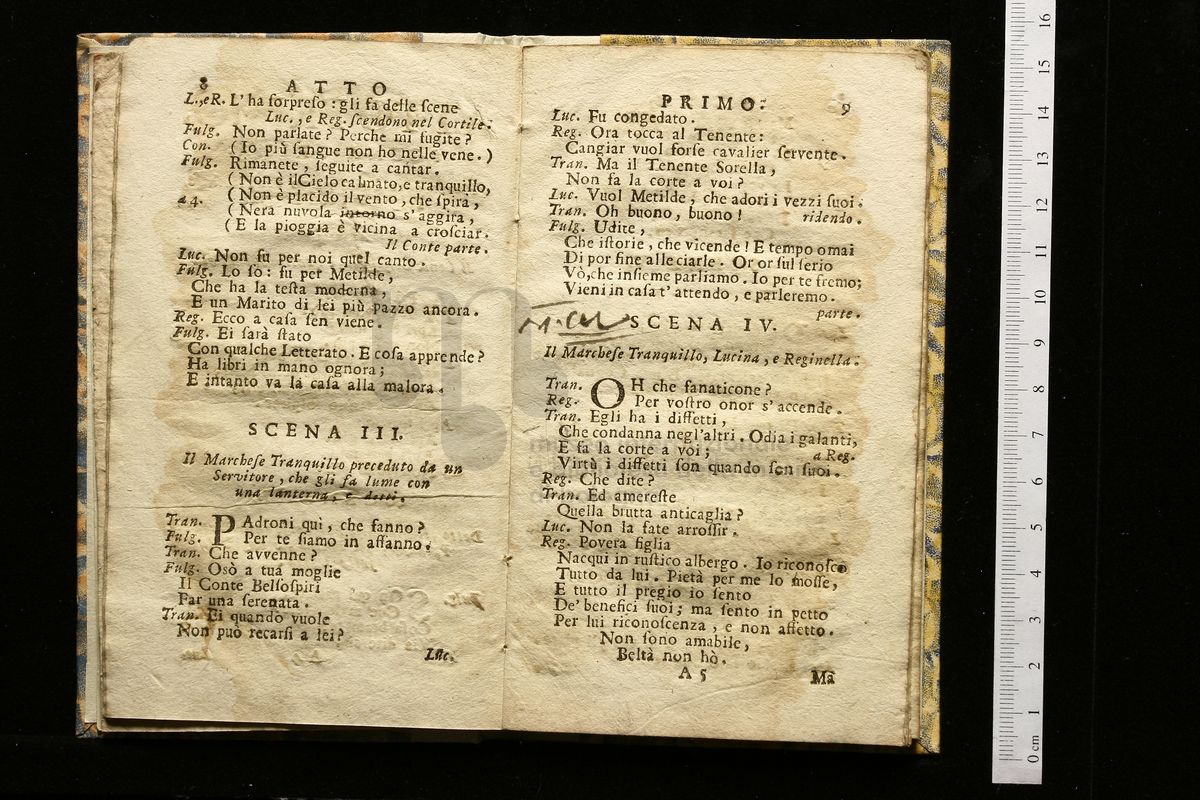 8 ATTO
L., e R. L' ha ſorpreſo : gli fa delle ſcene
Luc. , e Reg. ſcendono nel Cortile.
Fulg. Non parlate ? Perche mi fugite ?
Con. ( Io più ſangue non ho nelle vene. )
Fulg. Rimanete , ſeguite a cantar.
( Non è il Cielo calmato, e tranquillo,
a 4. ( Non è placido il vento , che ſpira ,
( Nera nuvola intorno s' aggira ,
( E la pioggia è vicina a croſciar.
Il Conte parte.
Luc. Non fu per noi quel canto .
Fulg. Lo ſo : fu per Metilde ,
Che ha la teſta moderna ,
E un Marito di lei più pazzo ancora.
Reg. Ecco a caſa ſen viene.
Fulg. Ei ſarà ſtato
Con qualche Letterato . E coſa apprende ?
Ha libri in mano ognora ;
E intanto va la caſa alla malora .
SCENA III.
Il Marcheſe Tranquillo preceduto da un
Servitore , che gli fa lume con
una lanterna, e detti.
Tran. PAdroni qui , che fanno ?
Fulg. Per te ſiamo in affanno.
Tran. Che avvenne ?
Fulg. Osò a tua moglie
Il Conte Belſoſpiri
Far una ſerenata .
Tran. Ei quando vuole
Non può recarſi a lei ?
Luc.
PRIMO. 9
Luc. Fu congedato .
Reg. Ora tocca al Tenente :
Cangiar vuol forſe cavalier ſervente .
Tran. Ma il Tenente Sorella ,
Non fa la corte a voi ?
Luc. Vuol Metilde , che adori i vezzi ſuoi .
Tran. Oh buono , buono ! ridendo .
Fulg. Udite ,
Che iſtorie , che vicende ! E tempo omai
Di por fine alle ciarle . Or or ſul ſerio
Vò, che inſieme parliamo . Io per te fremo;
Vieni in caſa t' attendo , e parleremo .
parte .
SCENA IV.
Il Marcheſe Tranquillo, Lucina , e Reginella.
Tran. OH che fanaticone ?
Reg. Per voſtro onor s' accende .
Tran. Egli ha i diffetti ,
Che condanna negl'altri . Odia i galanti,
E fa la corte a voi ; a Reg.
Virtù i diffetti ſon quando ſon ſuoi .
Reg. Che dite ?
Tran. Ed amereſte
Quella brutta anticaglia ?
Luc. Non la fate arroſſir .
Reg. Povera figlia
Nacqui in ruſtico albergo . Io riconoſco
Tutto da lui . Pietà per me lo moſſe ,
E tutto il pregio io ſento
De' benefici ſuoi ; ma ſento in petto
Per lui riconoſcenza , e non affetto .
Non ſono amabile ,
Beltà non hò .
A 5 Ma
0 cm 1 2 3 4 5 6 7 8 9 10 11 12 13 14 15 16